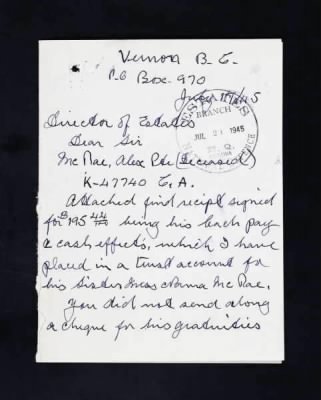 Vernon B.C.
P.O Box 970
July 17/45
ESTATES
BRANCH
JUL 21 1945
Director of Estates
Dear Sir
McRae, Alex Pte (Deceased)
K-47740 C.A.
Attached find recipt signed
for $195.44 being his back pay
& cash effects, which I have
placed in a trust account for
his sister Miss McRae.
You did not send along
a cheque for his gratuities